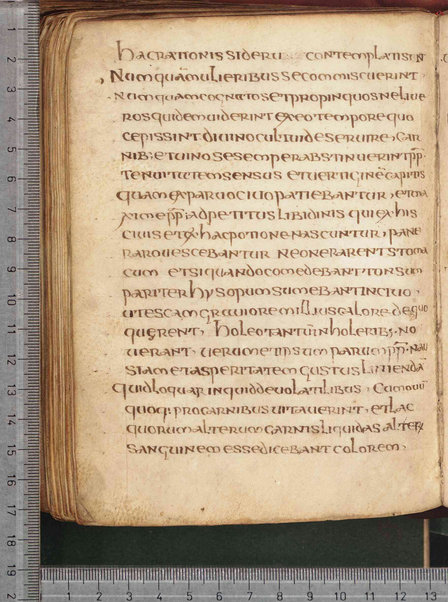 hac rationis sideru contemplatisunt
Numquam mulieribus se commiscuerint
Numquam cognatos et propinquos ne live
ros quidem viderint ex eo tempore quo
cepissint divino cultui deservire, car
nib; et vino se semper abstinuerint pp
tenuitutem sensus et vertiginē capitis
quam ex parvo civo patiebantur, et ma
xime pp adpetitus libidinis qui ex his
civis et ex hac potione nascuntur, pane
raro vescebantur ne onerarent stoma
cum et si quando comedebant tonsum
pariter hysopum sumebant in civo,
ut escam graviorem illius calore dequo
querent, holeo tantum in holerib; no
verant, verum et ipsum parum pp: nau
siam et asperitatem gustus liniendā
quid loquar inquid de volatilibus, cum ovū
quoq; pro carnibus vitaverint, et lac
quorum alterum carnis liquidas alterū
sanguinem esse dicebant colorem,
1 2 3 4 5 6 7 8 9 10 11 12 13 14 15 16 17 18 19 2
1 2 3 4 5 6 7 8 9 10 11 12 13